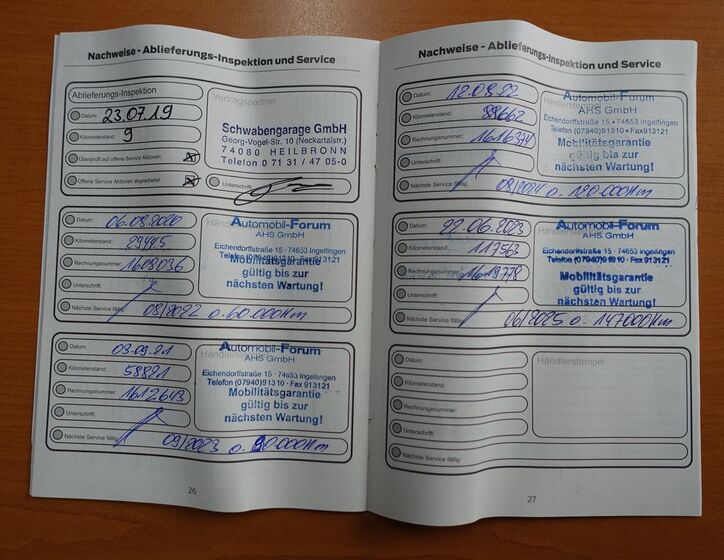 Nachweise - Ablieferungs-Inspektion und Service
Ablieferungs-Inspektion
Datum: 23.07.19
Kilometerstand: 9
Überprüft auf offene Service Aktionen:
Offene Service Aktionen abgearbeitet:
Vertragspartner
Schwabengarage GmbH
Georg-Vogel-Str. 10 (Neckartalstr.)
74080 HEILBRONN
Telefon 0 71 31 / 47 05-0
Unterschrift
Datum: 06.08.2020
Kilometerstand: 29415
Rechnungsnummer: 1608036
Unterschrift:
Nächste Service fällig: 08/2022 o. 60.000Km
Automobil-Forum
AHS GmbH
Eichendorffstraße 15 · 74653 Ingelfingen
Telefon (07940) 91310 · Fax 913121
Mobilitätsgarantie
gültig bis zur
nächsten Wartung!
Datum: 09.09.21
Kilometerstand: 58821
Rechnungsnummer: 1612643
Unterschrift:
Nächste Service fällig: 09/2023 o. 90.000Km
Automobil-Forum
AHS GmbH
Eichendorffstraße 15 · 74653 Ingelfingen
Telefon (07940) 91310 · Fax 913121
Mobilitätsgarantie
gültig bis zur
nächsten Wartung!
26
Nachweise - Ablieferungs-Inspektion und Service
Datum: 12.08.22
Kilometerstand: 88662
Rechnungsnummer:
Unterschrift:
Nächste Service fällig: 08/2024 o. 120.000Km
Automobil-Forum
AHS GmbH
Eichendorffstraße 15 • 74653 Ingelfingen
Telefon (07940) 91310 • Fax 913121
Mobilitätsgarantie
gültig bis zur
nächsten Wartung!
Datum: 22.06.2023
Kilometerstand: 117563
Rechnungsnummer: 1619778
Unterschrift:
Nächste Service fällig: 06/2025 o. 147000Km
Automobil-Forum
AHS GmbH
Eichendorffstraße 15 · 74653 Ingelfingen
Telefon (07940) 91310 · Fax 913121
Mobilitätsgarantie
gültig bis zur
nächsten Wartung!
Datum:
Kilometerstand:
Rechnungsnummer:
Unterschrift:
Nächste Service fällig:
Händlerstempel
27